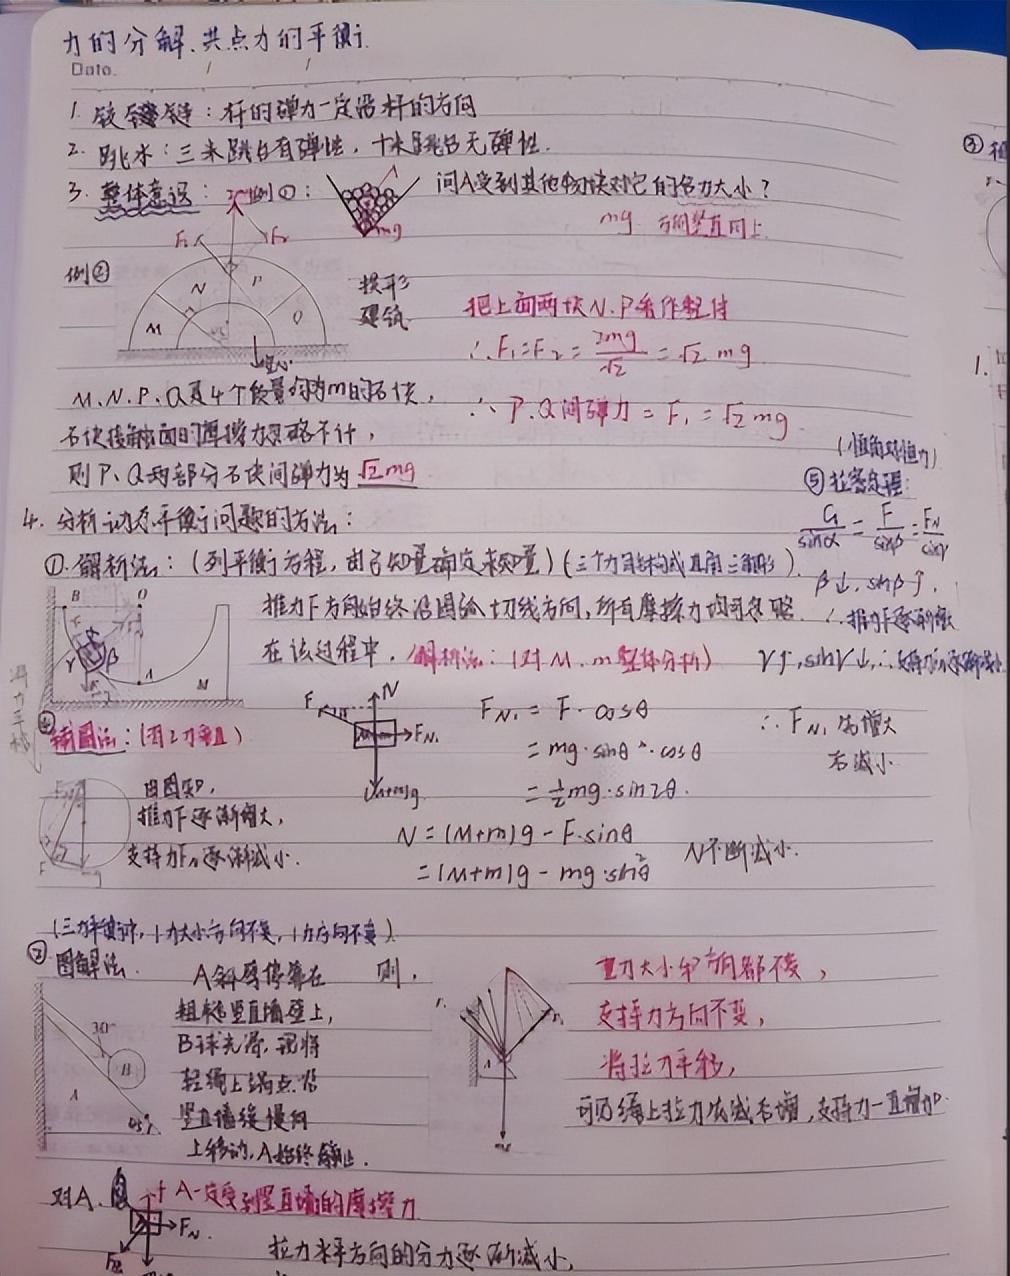 力的分解、共点力的平衡
Date.
1. 铰链：杆的弹力一定沿杆的方向
2. 跳水：三米跳台有弹性，十米跳台无弹性.
3. 整体意识：例①：
问A受到其他物块对它的合力大小？
mg 方向竖直向上
mg
F₁ F₂
例②
M N P Q
拱形
建筑
把上面两块N.P看作整体
∴F₁=F₂=2mg/√2=√2 mg
∴ P.Q间弹力 = F₁ = √2 mg
M、N、P、Q是4个质量均为m的石块，
石块接触面的摩擦力忽略不计，
则P、Q两部分石块间弹力为 √2mg
(恒角对恒力)
⑤拉密定理:
G/sinα = F/sinβ = FN/sinγ
4. 分析动态平衡问题的方法：
①. 解析法：(列平衡方程，由已知量确定未知量)(三个力能构成直角三角形)
β↓, sinβ↑,
∴推力F逐渐增大
γ↑, sinγ↓,
B O A M
推力F方向始终沿圆弧切线方向，所有摩擦力均可忽略
在该过程中，解析法：(对M、m整体分析)
F N FN₁
(M+m)g
FN₁ = F·cosθ
= mg·sinθ·cosθ
= ½mg·sin2θ.
∴ FN₁ 先增大
后减小
N = (M+m)g - F·sinθ
= (M+m)g - mg·sin²θ
N不断减小.
④辅圆法：
由图知，
推力F逐渐增大，
支持力FN逐渐减小.
(三力平衡时，1力大小方向不变，1力方向不变)
②图解法.
30°
B
A
45°
A斜劈停靠在
粗糙竖直墙壁上，
B球光滑，现将
轻绳上端点沿
竖直墙缓慢向
上移动，A始终静止.
则，
重力大小和方向都不变，
支持力方向不变，
将拉力平移，
可见绳上拉力先减后增，支持力一直增加
对A.
f A一定受到竖直墙的摩擦力
FN.
拉力水平方向的分力逐渐减小，